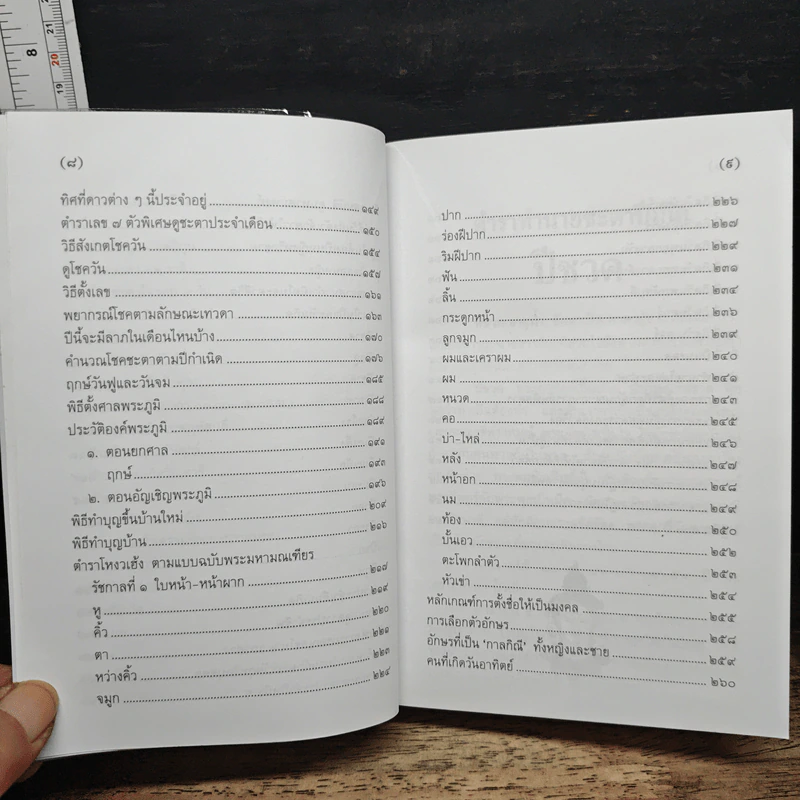 8
21
20
19
(๘)
ทิศที่ดาวต่าง ๆ นี้ประจำอยู่ ๑๔๙
ตำราเลข ๗ ตัวพิเศษดูชะตาประจำเดือน ๑๕๐
วิธีสังเกตโชควัน ๑๕๔
ดูโชควัน ๑๕๗
วิธีตั้งเลข ๑๖๑
พยากรณ์โชคตามลักษณะเทวดา ๑๖๓
ปีนี้จะมีลาภในเดือนไหนบ้าง ๑๗๐
คำนวณโชคชะตาตามปีกำเนิด ๑๗๖
ฤกษ์วันฟูและวันจม ๑๘๕
พิธีตั้งศาลพระภูมิ ๑๘๘
ประวัติองค์พระภูมิ ๑๘๙
๑. ตอนยกศาล ๑๙๑
ฤกษ์ ๑๙๓
๒. ตอนอัญเชิญพระภูมิ ๑๙๖
พิธีทำบุญขึ้นบ้านใหม่ ๒๐๙
พิธีทำบุญบ้าน ๒๑๖
ตำราโหงวเฮ้ง ตามแบบฉบับพระมหามณเฑียร
รัชกาลที่ ๑ ใบหน้า-หน้าผาก ๒๑๗
หู ๒๑๙
คิ้ว ๒๒๐
ตา ๒๒๑
หว่างคิ้ว ๒๒๓
จมูก ๒๒๔
(๙)
ปาก ๒๒๖
ร่องฝีปาก ๒๒๗
ริมฝีปาก ๒๒๙
ฟัน ๒๓๑
ลิ้น ๒๓๔
กระดูกหน้า ๒๓๖
ลูกจมูก ๒๓๙
ผมและเคราผม ๒๔๐
ผม ๒๔๑
หนวด ๒๔๓
คอ ๒๔๕
บ่า-ไหล่ ๒๔๖
หลัง ๒๔๗
หน้าอก ๒๔๘
นม ๒๔๙
ท้อง ๒๕๐
บั้นเอว ๒๕๒
ตะโพกลำตัว ๒๕๓
หัวเข่า ๒๕๔
หลักเกณฑ์การตั้งชื่อให้เป็นมงคล ๒๕๕
การเลือกตัวอักษร ๒๕๘
อักษรที่เป็น ‘กาลกิณี’ ทั้งหญิงและชาย ๒๕๙
คนที่เกิดวันอาทิตย์ ๒๖๐